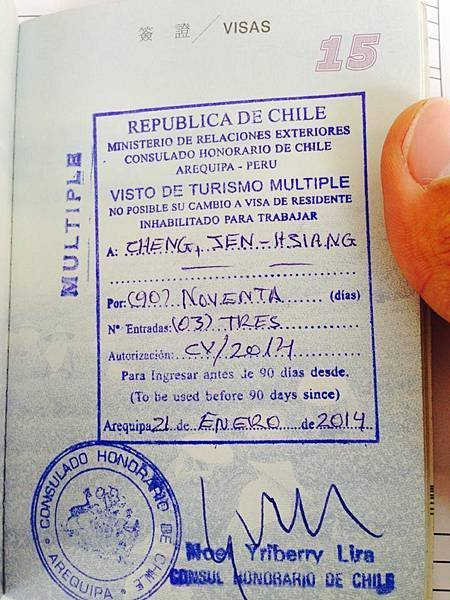 簽 證 / VISAS
15
MULTIPLE
REPUBLICA DE CHILE
MINISTERIO DE RELACIONES EXTERIORES
CONSULADO HONORARIO DE CHILE
AREQUIPA - PERU
VISTO DE TURISMO MULTIPLE
NO POSIBLE SU CAMBIO A VISA DE RESIDENTE
INHABILITADO PARA TRABAJAR
A: CHENG, JEN-HSIANG
Por: (90) NOVENTA (días)
Nº Entradas: (03) TRES
Autorización: CY/2014
Para Ingresar antes de 90 días desde.
(To be used before 90 days since)
Arequipa 21 de ENERO de 2014
CONSULADO HONORARIO DE CHILE
AREQUIPA
Yriberry Lira
CONSUL HONORARIO DE CHILE